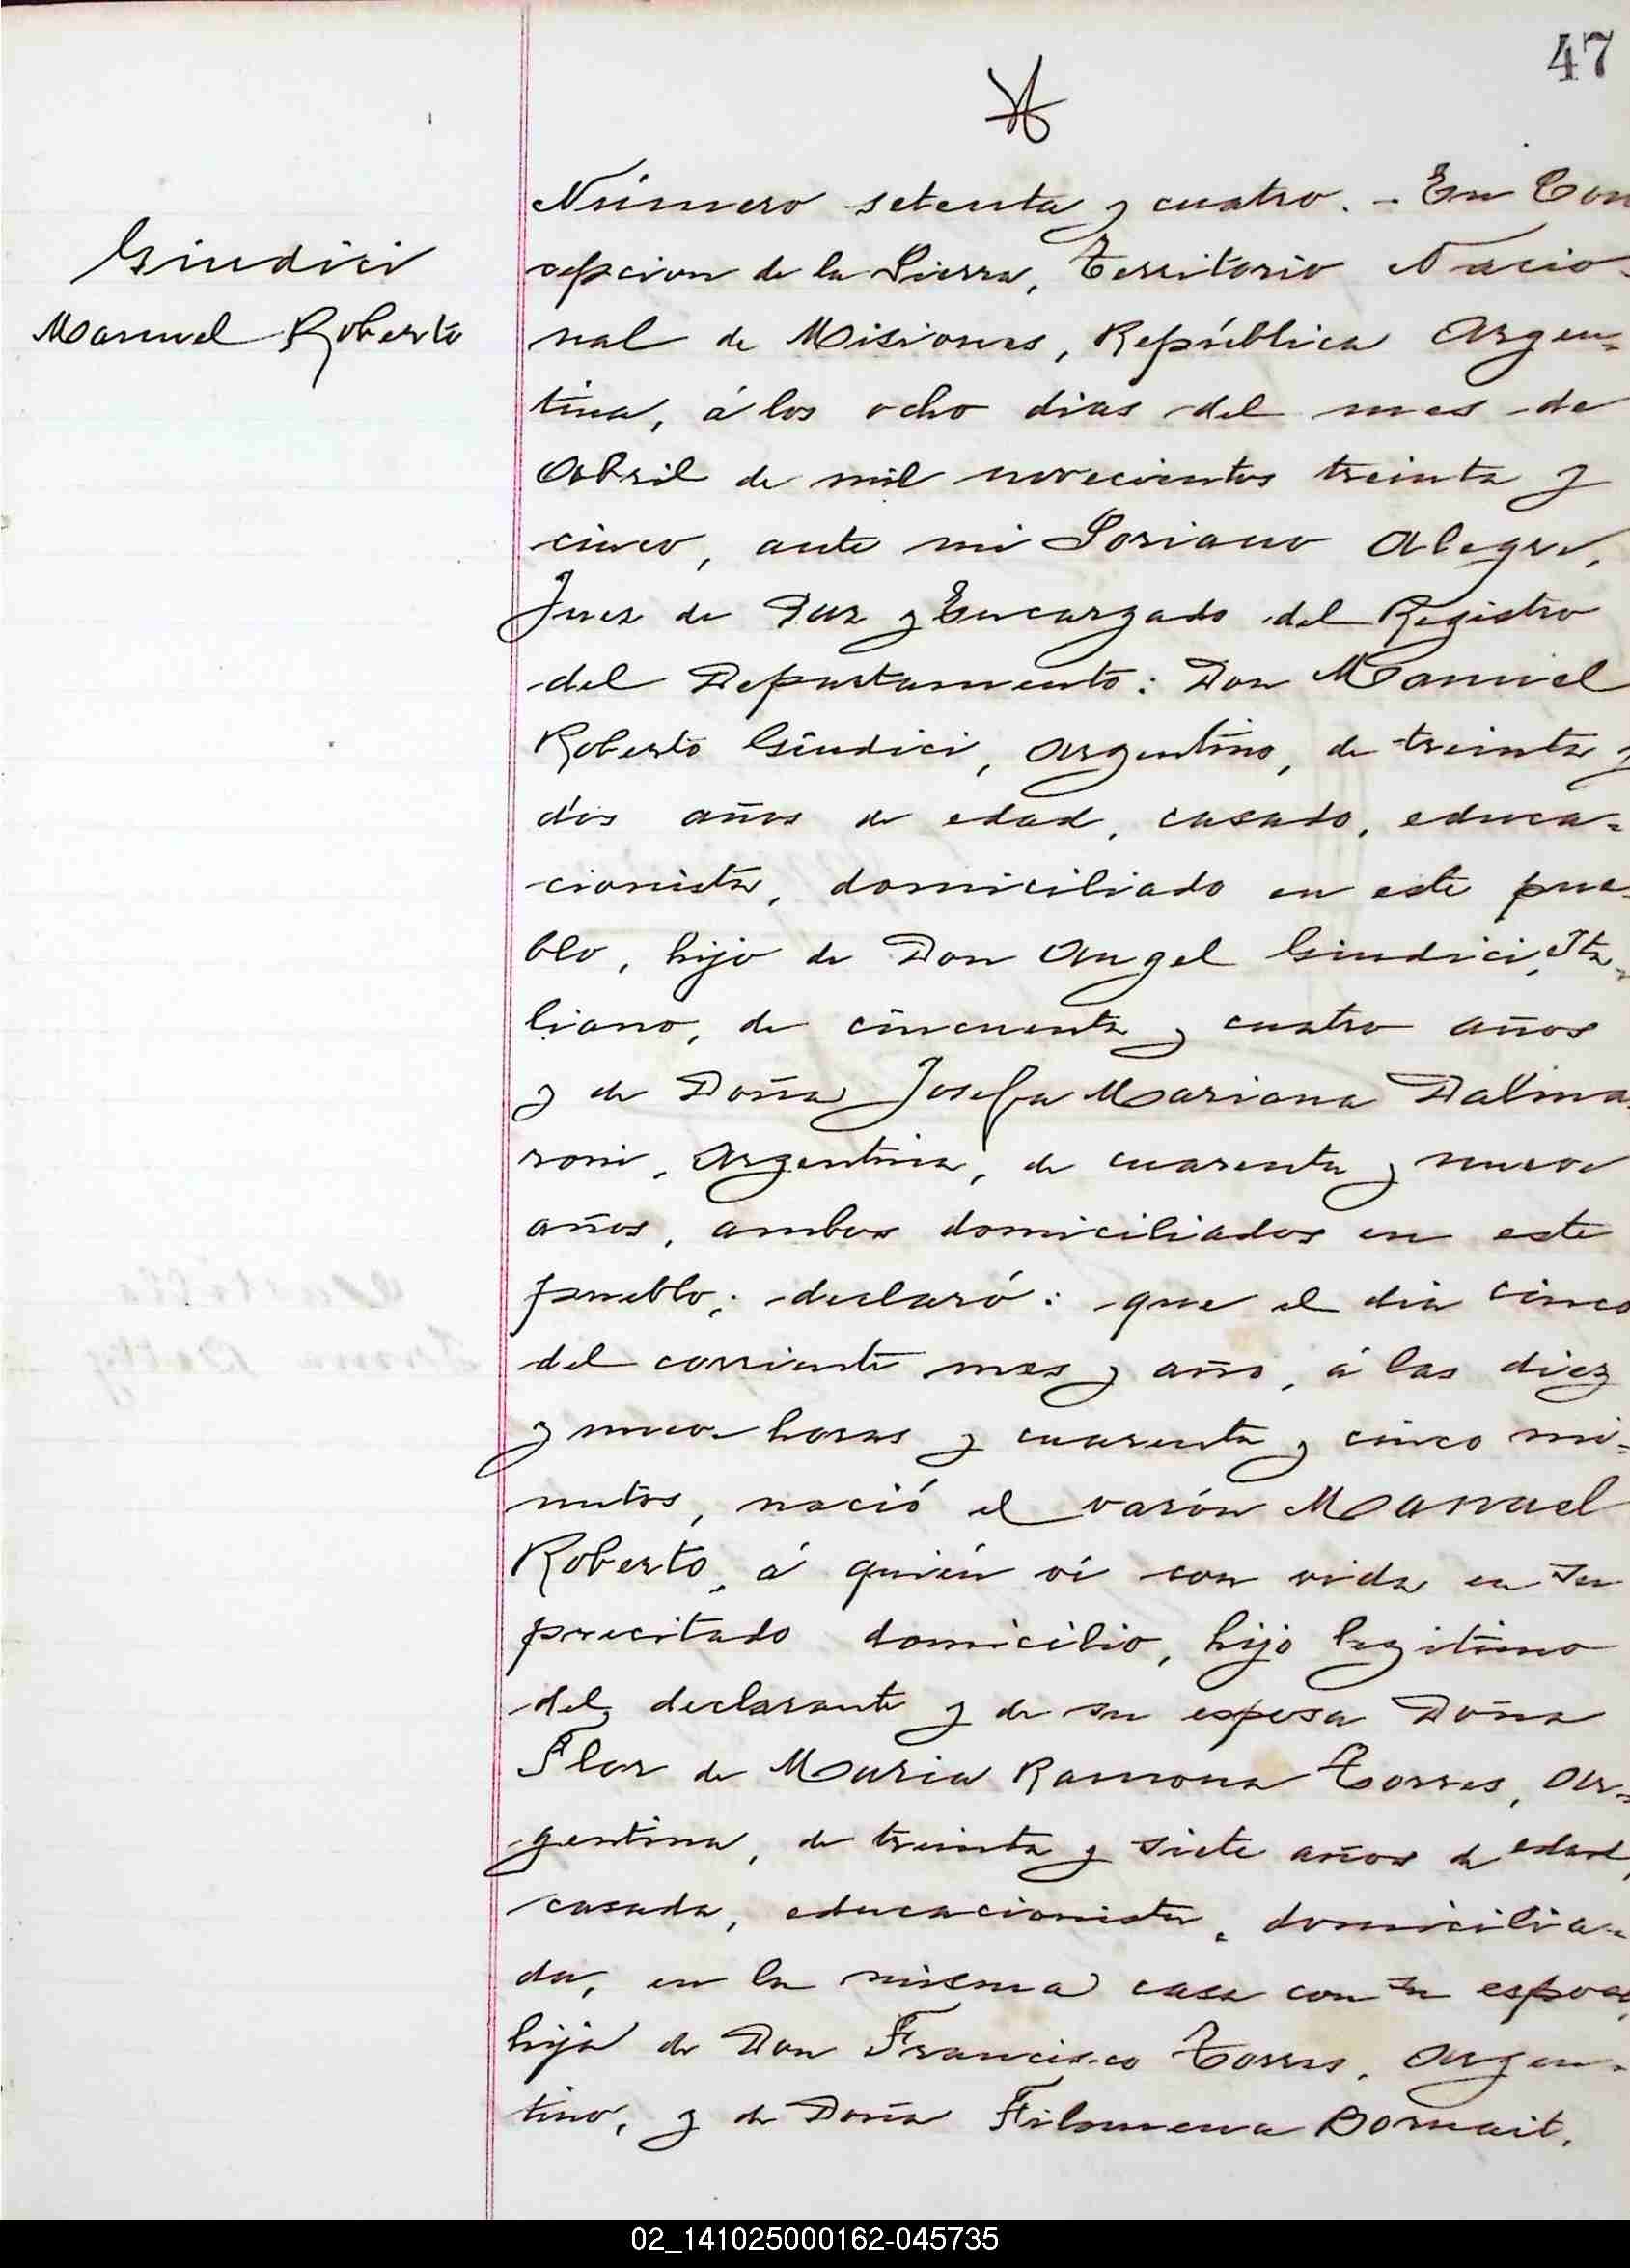 47
Número setenta y cuatro. - En Con
cepcion de la Sierra, Territorio Nacio-
Giudici
Manuel Roberto
nal de Misiones, República Argen-
tina, á los ocho dias del mes de
Abril de mil novecientos treinta y
cinco, ante mi Soriano Alegre,
Juez de Paz y Encargado del Registro
del Departamento: Don Manuel
Roberto Giudici, Argentino, de treinta y
dós años de edad, casado, educa-
cionista, domiciliado en este pue-
blo, hijo de Don Angel Giudici, Ita-
liano, de cincuenta y cuatro años
y de Doña Josefa Mariana Dalma-
roni, Argentina, de cuarenta y nueve
años, ambos domiciliados en este
pueblo; declaró: que el dia cinco
del corriente mes y año, á las diez
y nueve horas y cuarenta y cinco mi-
nutos, nació el varón Manuel
Roberto, á quién ví con vida en su
precitado domicilio, hijo legitimo
del declarante y de su esposa Doña
Flor de Maria Ramona Torres, Ar-
gentina, de treinta y siete años de edad,
casada, educacionista, domicilia-
da, en la misma casa con su esposo,
hija de Don Francisco Torres, Argen-
tino, y de Doña Filomena Bornait,
02_141025000162-045735